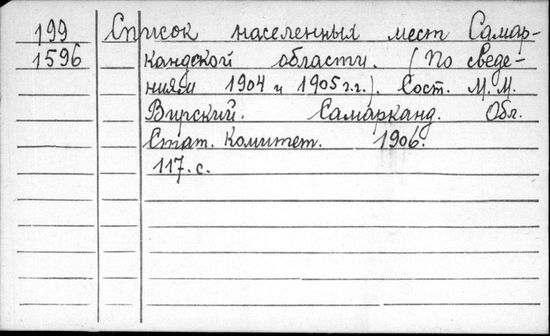 199 Список населенных мест Самар-
1596 кандской области. (По сведе-
ниям 1904 и 1905 г.г.). Сост. М.М.
Вирский. Самарканд. Обл.
Стат. Комитет. 1906.
117. с.